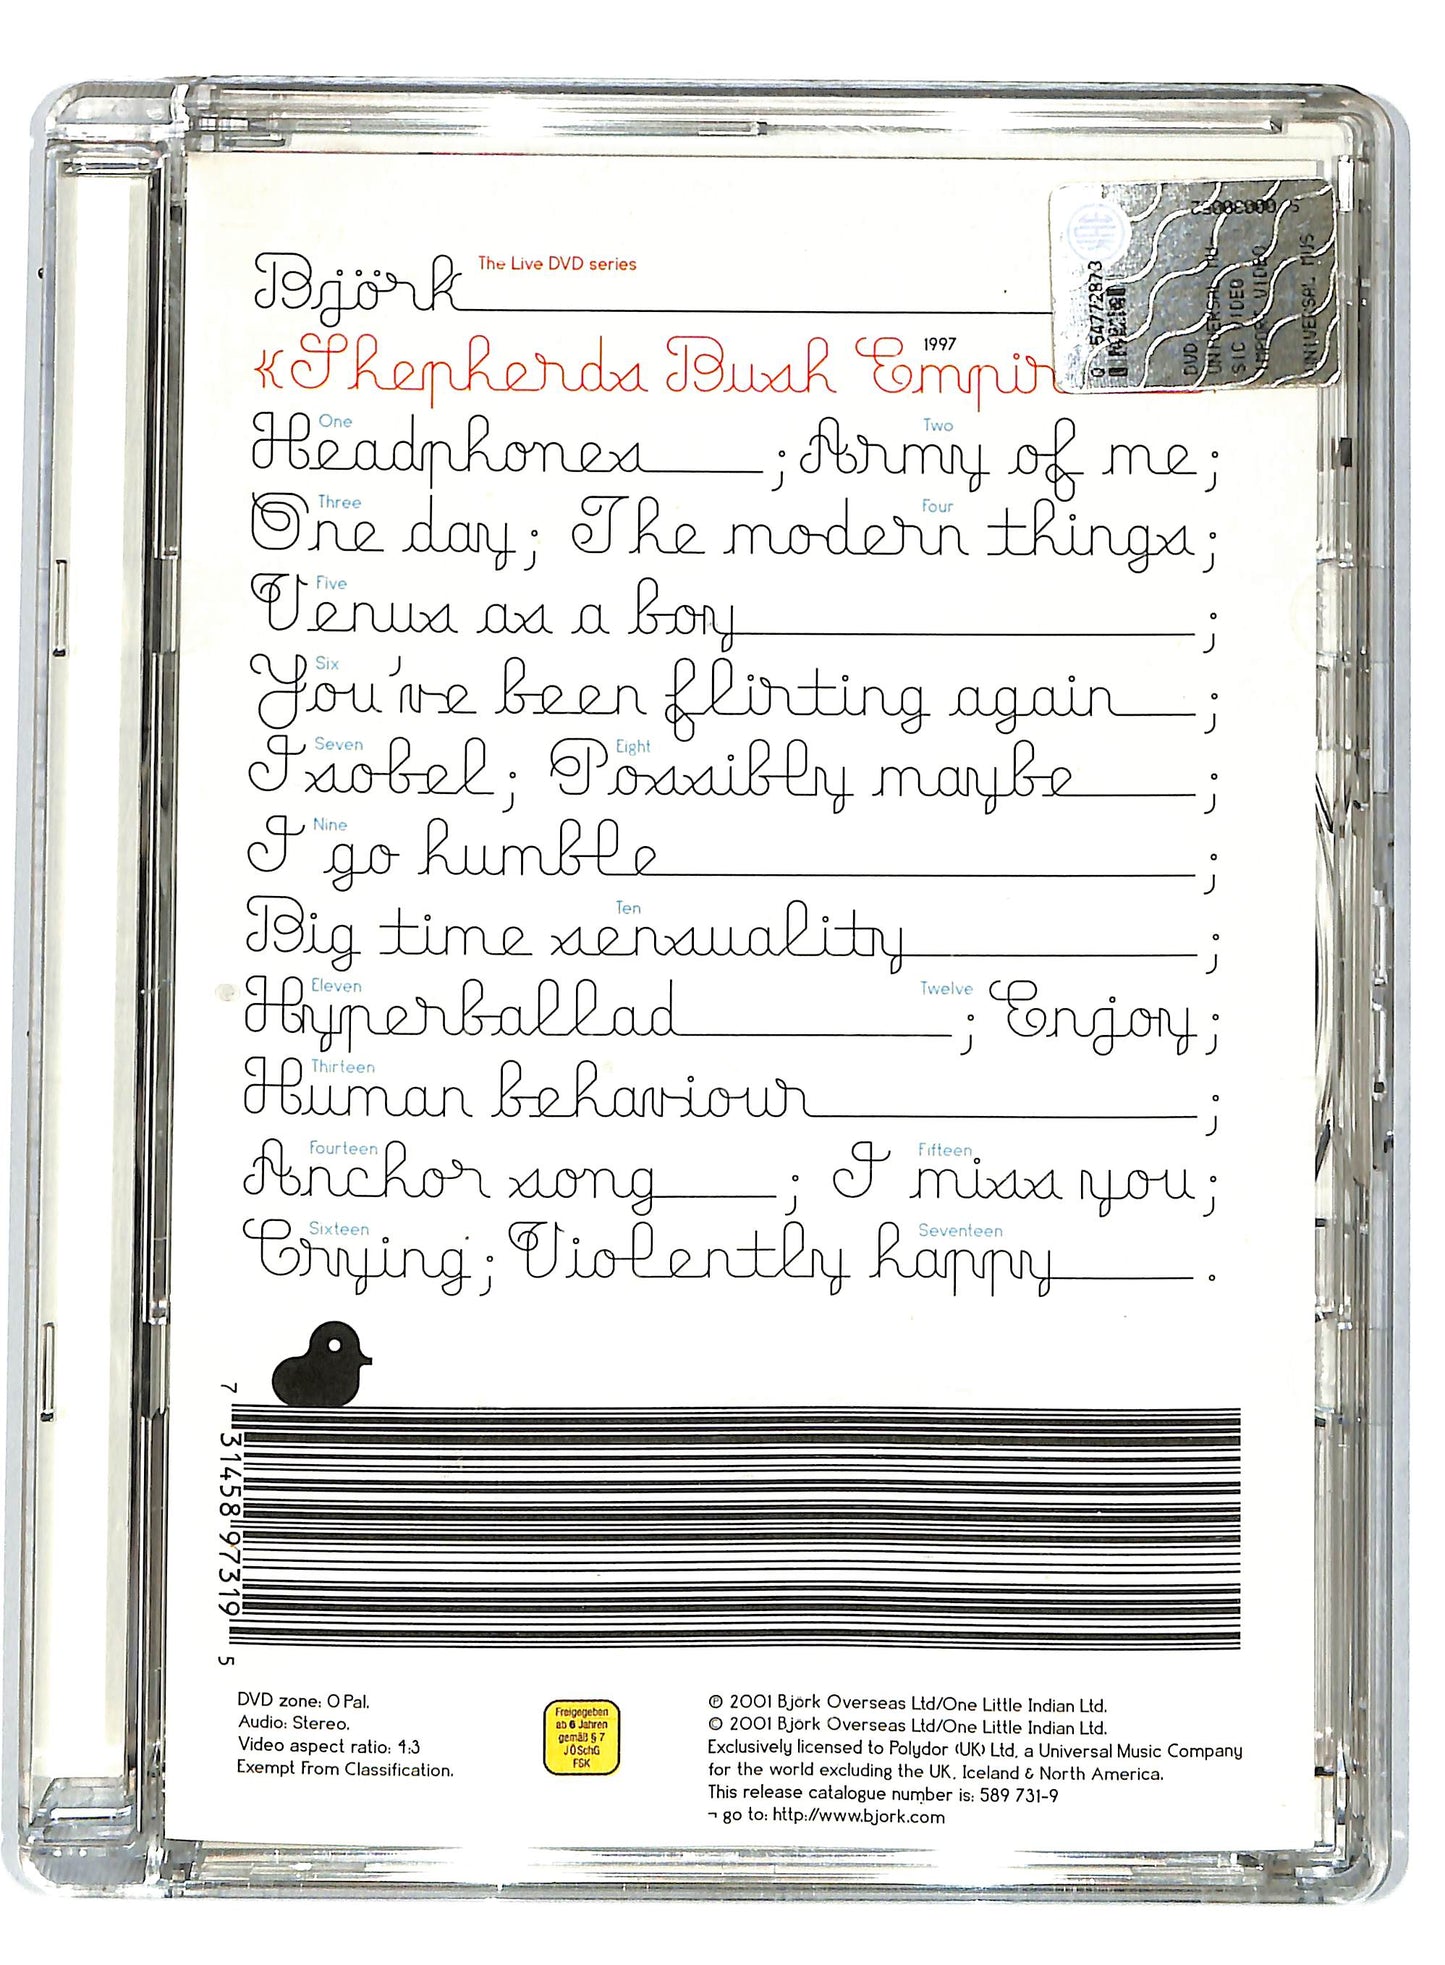 Björk The Live DVD series
1997
«Shepherds Bush
One Two
Headphones ; Army of me ;
Three Four
One day ; The modern things ;
Five
Venus as a boy ;
Six
You've been flirting again ;
Seven Eight
Isobel ; Possibly maybe ;
Nine
I go humble ;
Ten
Big time sensuality ;
Eleven Twelve
Hyperballad ; Enjoy ;
Thirteen
Human behaviour ;
Fourteen Fifteen
Anchor song ; I miss you ;
Sixteen Seventeen
Crying ; Violently happy .
7 31458 97319 5
DVD zone: 0 Pal.
Audio: Stereo.
Video aspect ratio: 4:3
Exempt From Classification.
Freigegeben
ab 6 Jahren
gemäß § 7
JÖSchG
FSK
℗ 2001 Björk Overseas Ltd/One Little Indian Ltd.
© 2001 Björk Overseas Ltd/One Little Indian Ltd.
Exclusively licensed to Polydor (UK) Ltd, a Universal Music Company
for the world excluding the UK, Iceland & North America.
This release catalogue number is: 589 731-9
¬ go to: http://www.bjork.com
DVD
UNIVERSAL MU
SIC VIDEO
IMPORT VIDEO
UNIVERSAL MUS